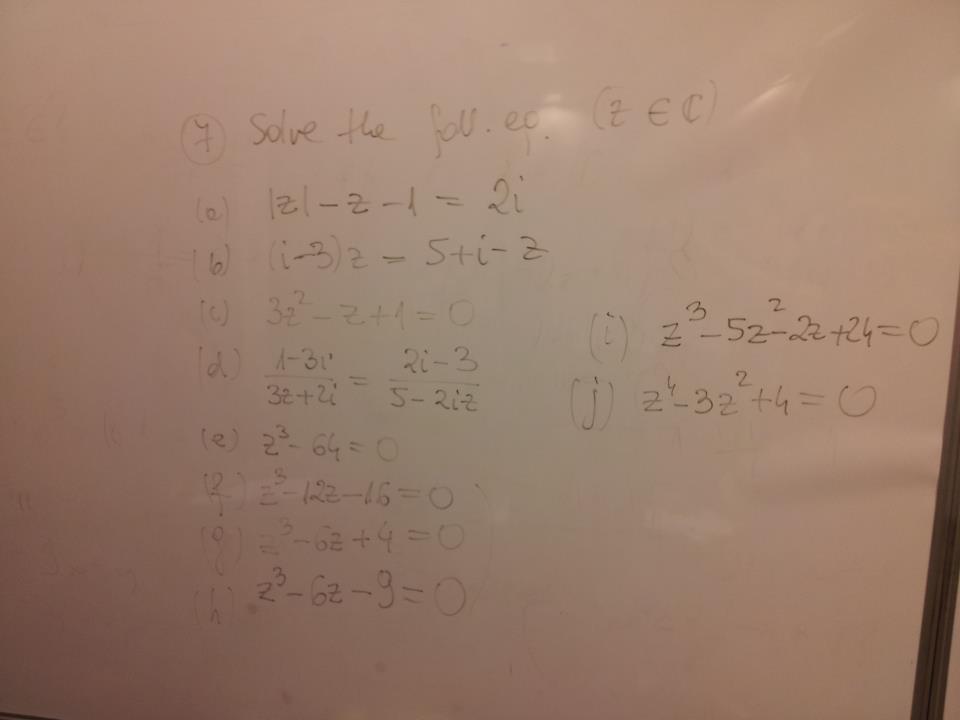 (7) Solve the foll. eq. (z ∈ ℂ)
(a) |z| - z - 1 = 2i
(b) (i-3)z = 5+i-z
(c) 3z² - z + 1 = 0
(d) (1-3i)/(3z+2i) = (2i-3)/(5-2iz)
(e) z³ - 64 = 0
(f) z³ - 12z - 16 = 0
(g) z³ - 6z + 4 = 0
(h) z³ - 6z - 9 = 0
(i) z³ - 5z² - 2z + 24 = 0
(j) z⁴ - 3z² + 4 = 0